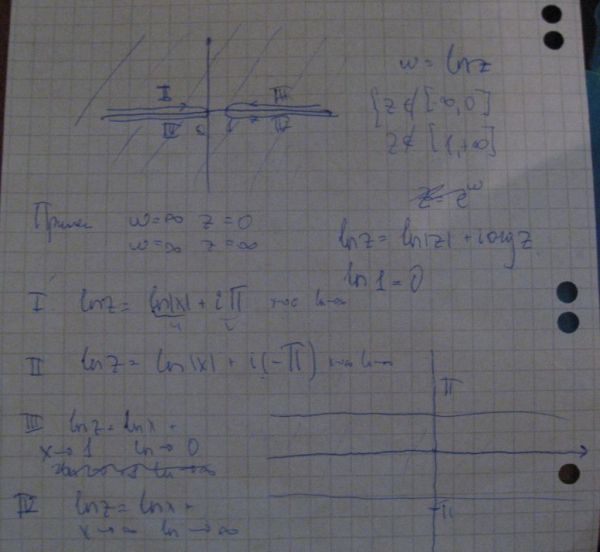 I III
II 0 1 IV
w = ln z
z ∉ [-∞, 0]
z ∉ [1, +∞]
w = ∞ z = 0
w = ∞ z = ∞
ln z = ln|z| + i arg z
ln 1 = 0
I ln z = ln|x| + i π
II ln z = ln|x| + i(-π)
III ln z = ln x +
x → 1 ln → 0
IV ln z = ln x +
x → ∞ ln → ∞
π
-π